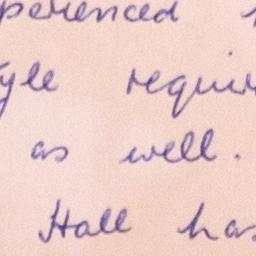 perienced
yle requir
as well.
Hall has